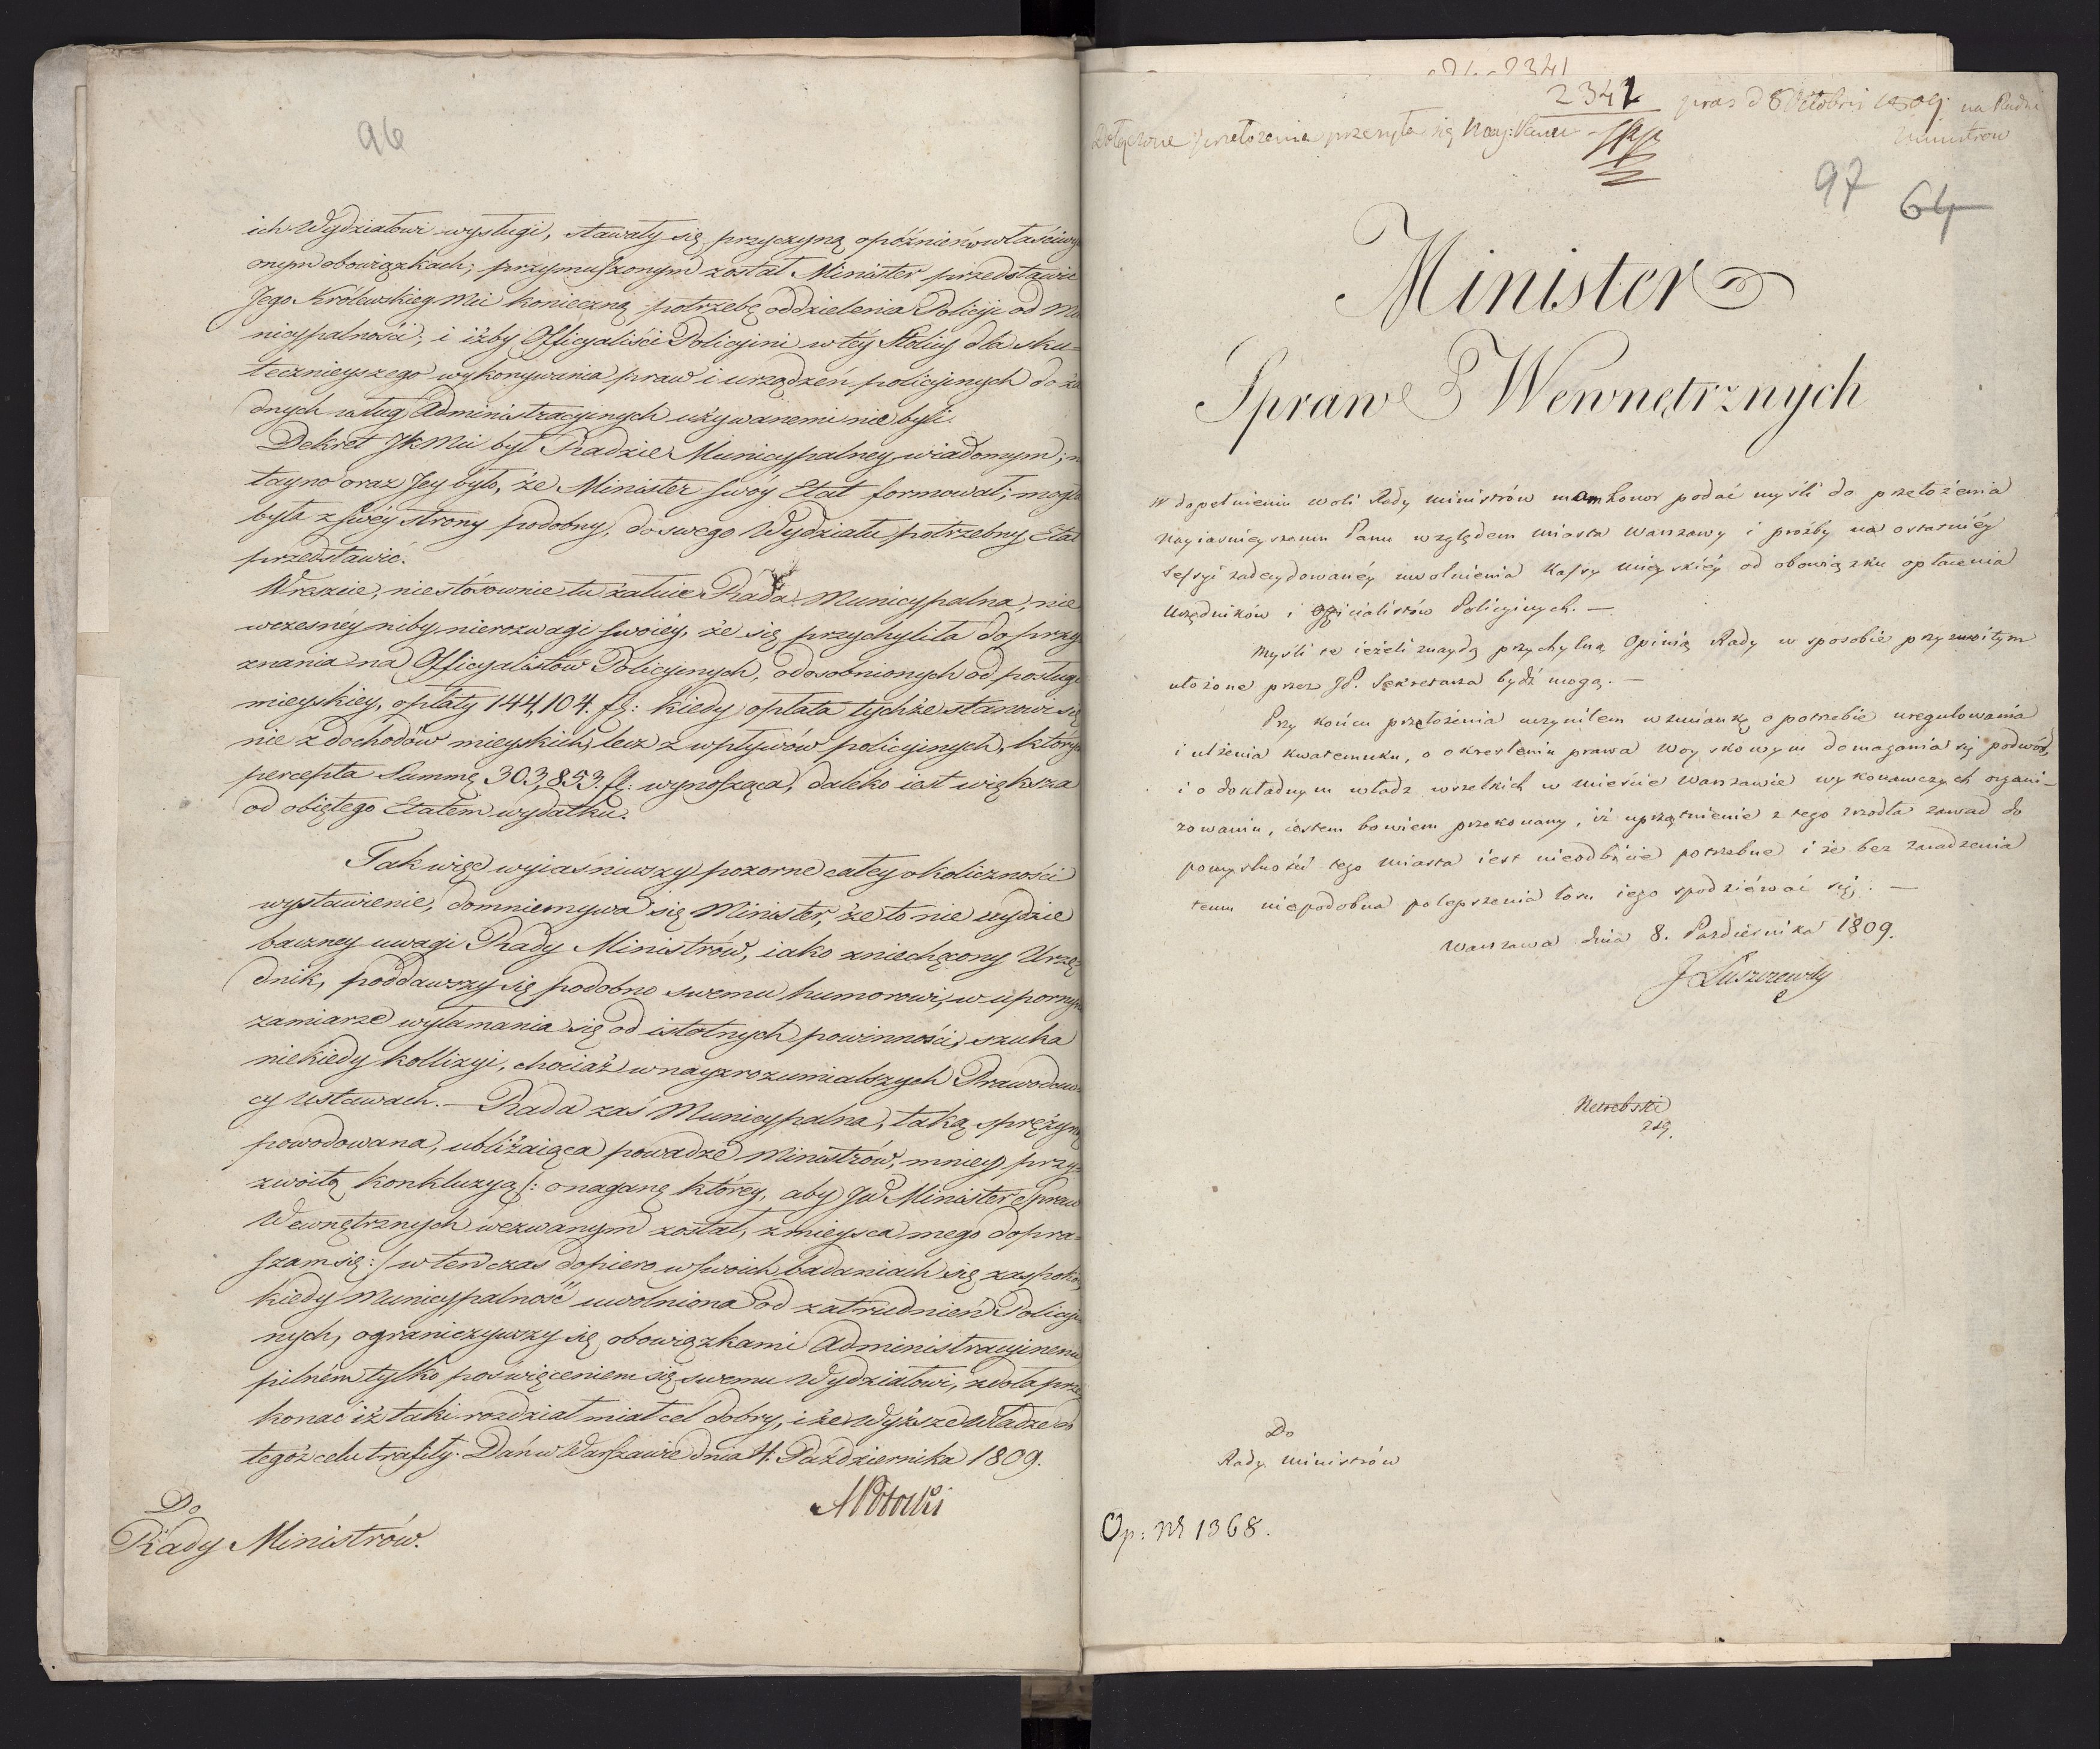 96
ich Wydziałowi wysługi, stawały się przyczyną opóźnień w właściwych
onym obowiązkach; przymuszonym został Minister przedstawić
Jego Królewskiey Mci konieczną potrzebę oddzielenia Policyi od Mu
nicypalności, i iżby Officyaliści Policyini w téy Stolicy dla sku=
tecznieyszego wykonywania praw i urządzeń policyinych do ża
dnych usług Administracyinych używanemi nie byli.
Dekret JKMci był Radzie Municypalney wiadomym; n
tayno oraz Jey było, że Minister swóy Etat formował; mogła
była z swéy strony podobny, do swego Wydziału potrzebny Etat
przedstawić.
Wreszcie, niestósownie tu żaluie Rada Municypalna, nie
wczesnéy niby nierozwagi swoiéy, że się przychyliła do przy
znania na Officyalistów Policyinych, odosobnionych od posług
mieyskiey, opłaty 144,104. fl: kiedy opłata tychże stanowi się
nie z dochodów mieyskich, lecz z wpływów policyinych, których
percepta Summę 303,853. fl: wynosząca, daleko iest większa
od obiętego Etatem wydatku.
Tak więc wyiaśniwszy pozorne całey okoliczności
wystawienie, domniemywa się Minister, że to nie uydzie
baczney uwagi Rady Ministrów, iako zniechęcony Urzę=
dnik, poddawszy się podobno swemu humorowi, w upornym
zamiarze wyłamania się od istotnych powinności, szuka
niekiedy kollizyi, chociaż w nayzrozumialszych Prawodaw
cy ustawach. — Rada zaś Municypalna, taką sprężyną
powodowana, ubliżaiąca powadze Ministrów, mniey przy=
zwoitą konkluzyą /: o naganę którey, aby JW Minister Spraw
Wewnętrznych wezwanym został, z mieysca mego dopra=
szam się :/ w ten czas dopiero w swoich badaniach się zaspokoi,
kiedy Municypalność uwolniona od zatrudnień Policyi
nych, ograniczywszy się obowiązkami Administracyinemi
pilném tylko poświęceniem się swemu Wydziałowi, zdoła prze
konać iż taki rozdział miał cel dobry, i że Wyższe Władze do
tegoż celu trafiły. Dan w Warszawie dnia 4. Października 1809.
APotocki
Do
Rady Ministrów.
2341
2342
pras d 8 Octobris 1809 na Radzie
Ministrow
Dołączone przełożenie przesyła się Nayj: Panu
97
64
Minister
Spraw Wewnętrznych
W dopełnieniu woli Rady Ministrów mam honor podać myśli do przełożenia
Nayiaśnieyszemu Panu względem miasta Warszawy i prośby na ostatniéy
Sessyi zadecydowanéy uwolnienia Kassy mieyskiéy od obowiązku opłacenia
Urzędników i Officialistów Policyinych. —
Myśli te ieżeli znaydą przychylną Opinią Rady w sposobie przyzwoitym
ułożone przez JP. Sekretarza bydź mogą. —
Przy końcu przełożenia uczyniłem wzmiankę o potrzebie uregulowania
i ulżenia kwaterunku, o określeniu prawa woyskowym domagania się podwód,
i o dokładnym władz wszelkich w mieście Warszawie wykonawczych organi-
zowaniu, iestem bowiem przekonany, iż uprzątnienie z tego źrzodła zawad do
pomyślności tego miasta iest nieodbicie potrzebne i że bez zaradzenia
temu niepodobna polepszenia losu iego spodziéwać się. —
Warszawa dnia 8. Pazdziernika 1809.
J Łuszczewsky
Netrebski
zsg.
Do
Rady Ministrów
Op: Nr 1368.